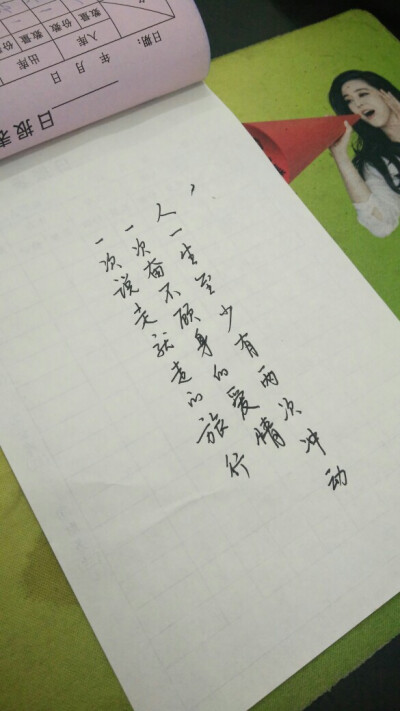 人一生至少有两次冲动
一次奋不顾身的爱情
一次说走就走的旅行
日报表
年 月 日
日期:
入库
出库
数量
份数
数量